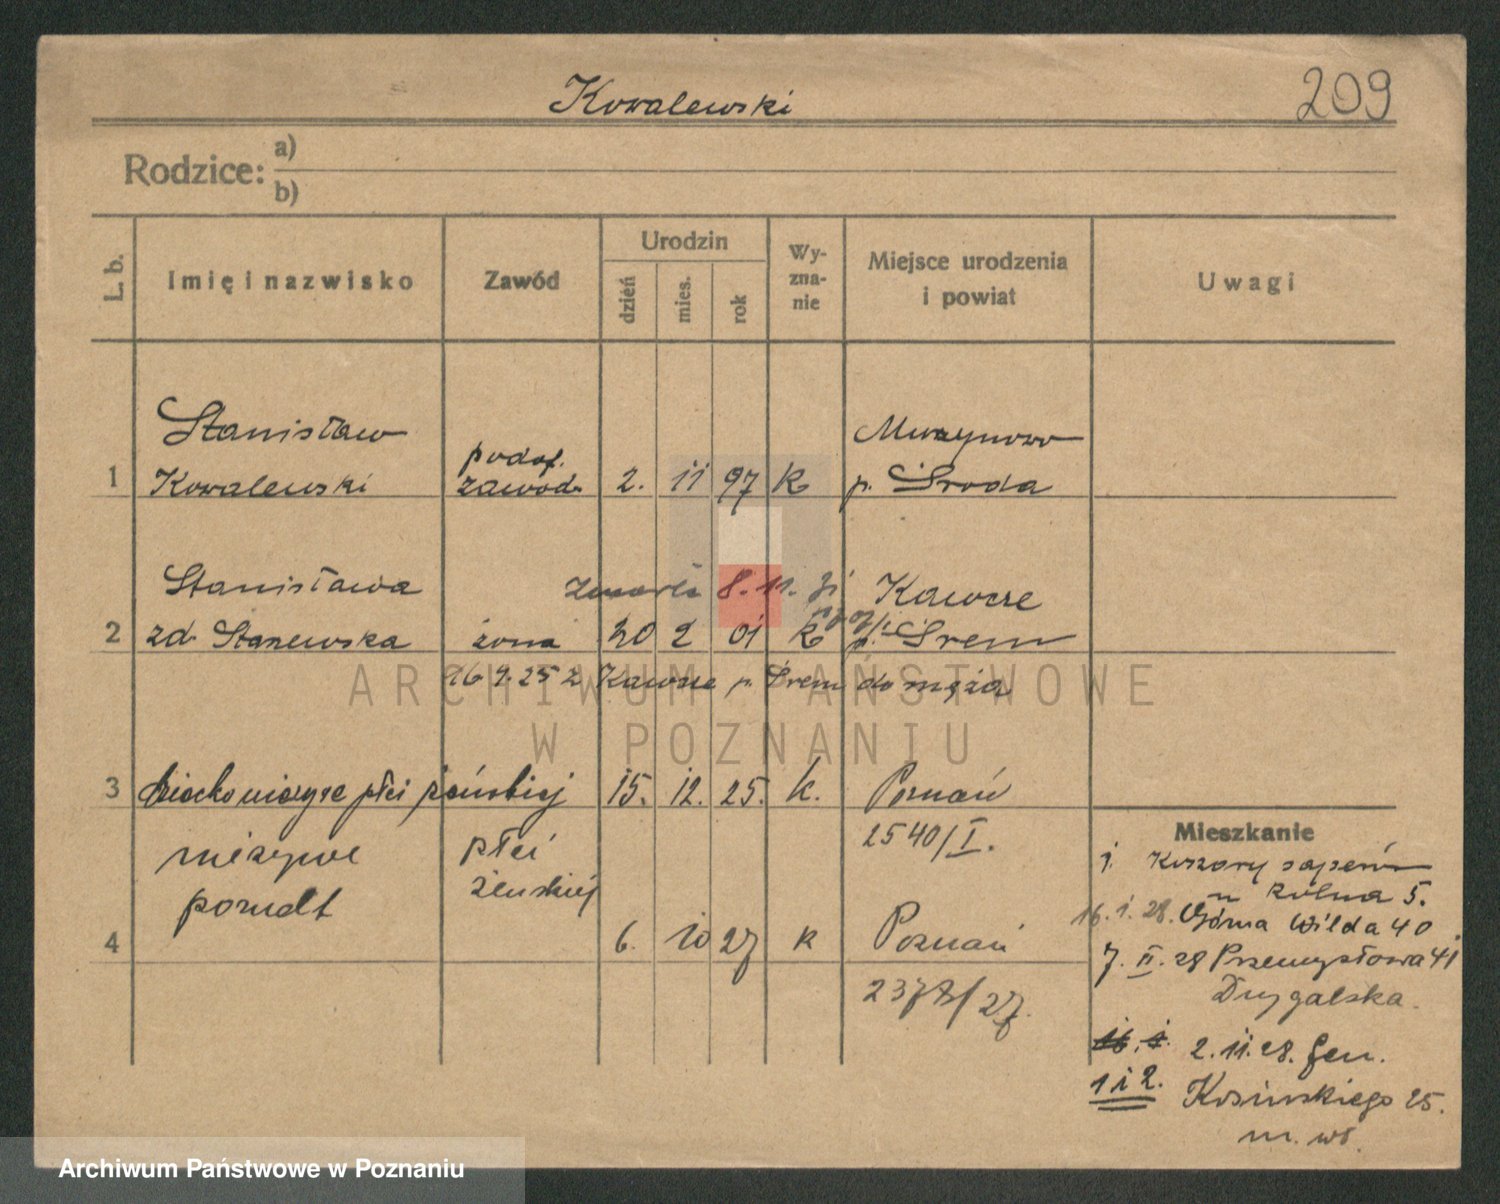 Kowalewski
209
Rodzice: a)
b)
L. b.
Imię i nazwisko
Zawód
Urodzin
dzień
mies.
rok
Wy-
zna-
nie
Miejsce urodzenia
i powiat
Uwagi
Stanisław
podof.
Murzynowo
1 Kowalewski zawod. 2. 11 97 k p. Środa
Stanisława
zmarła 8. 11. 31
Kawcze
2 zd. Stanewska żona 20 2 01 k p. Śrem
16. 9. 25 z Kawcze p. Śrem do męża
3 dziecko nieżywe płci żeńskiej 15. 12. 25. k. Poznań
2540/I.
nieżywe
płci
poród
żeńskiej
4 6. 10 27 k Poznań
2378/27.
Mieszkanie
1. Koszary saperów
Rólna 5.
16. 1. 28. Górna Wilda 40
7. II. 28 Przemysłowa 41
Drygalska.
16. 1. 2. 11. 28. Gen.
1 i 2. Kosińskiego 25.
ARCHIWUM PAŃSTWOWE
W POZNANIU
Archiwum Państwowe w Poznaniu